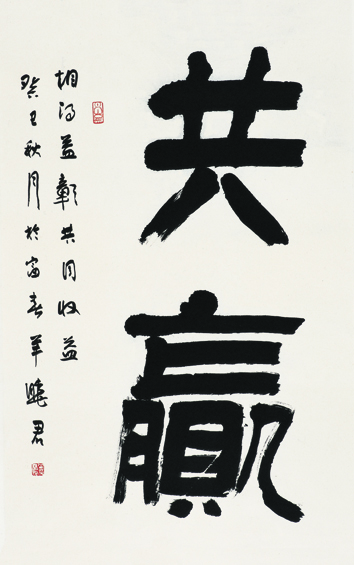 共赢
相得益彰共同收益
癸巳秋月於富春羊晓君